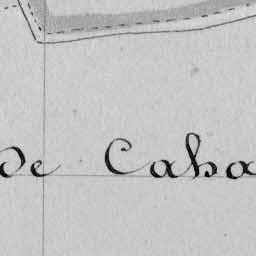 de Caba